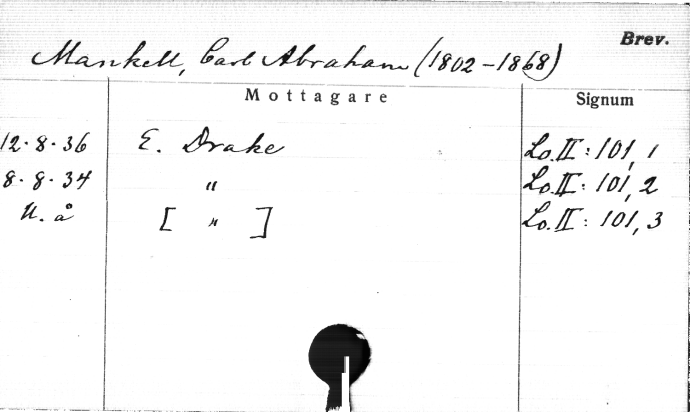 Brev.
Mankell, Carl Abraham (1802-1868)
Mottagare Signum
12.8.36 E. Drake Lo. II: 101, 1
8.8.34 " Lo. II: 101, 2
U. å [ " ] Lo. II: 101, 3